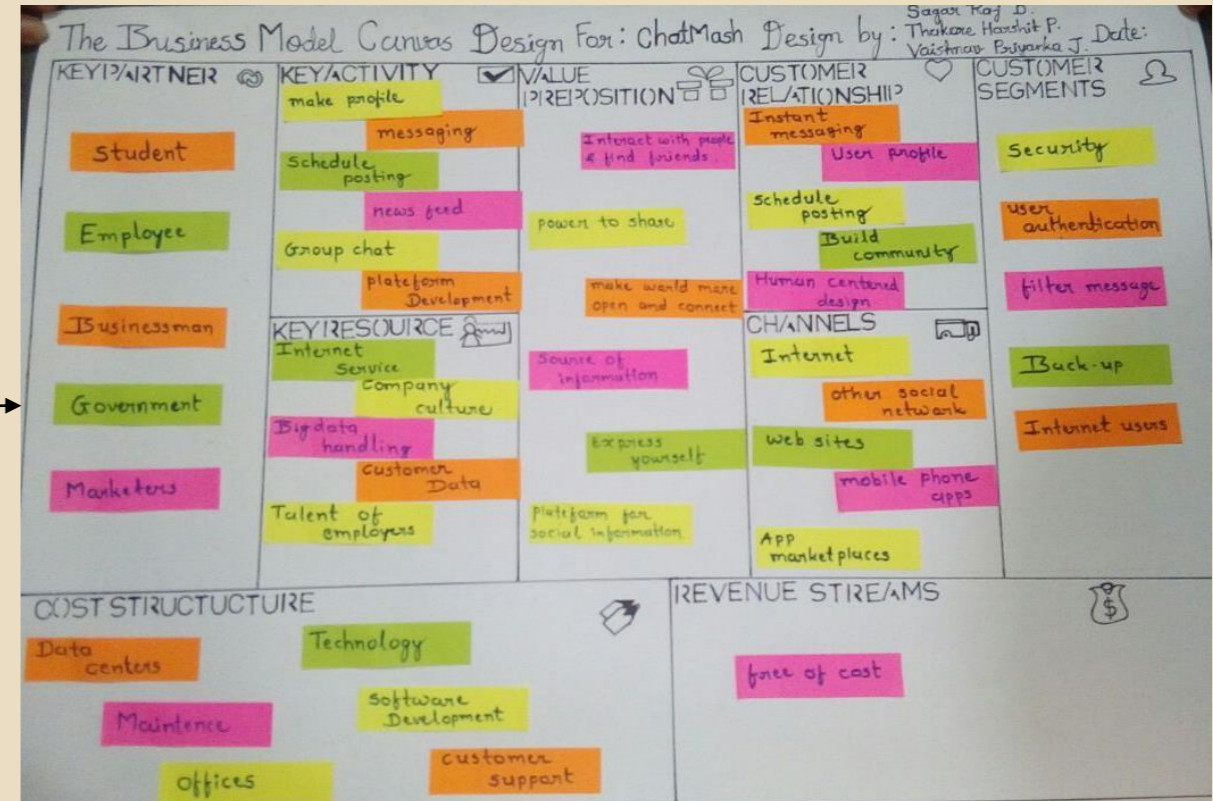 The Business Model Canvas Design For: ChatMash Design by:
Sagar Raj D.
Thakare Harshit P.
Vaishnav Priyanka J.
Date:
KEY PARTNER
Student
Employee
Businessman
Government
Marketers
KEY ACTIVITY
make profile
messaging
Schedule
posting
news feed
Group chat
plateform
Development
KEY RESOURCE
Internet
Service
Company
culture
Bigdata
handling
Customer
Data
Talent of
employers
VALUE
PREPOSITION
Interact with people
& find friends.
power to share
make world more
open and connect
Source of
information
Express
yourself
plateform for
social information
CUSTOMER
RELATIONSHIP
Instant
messaging
User profile
Schedule
posting
Build
community
Human centered
design
CHANNELS
Internet
other social
network
web sites
mobile phone
apps
App
marketplaces
CUSTOMER
SEGMENTS
Security
user
authentication
filter message
Back-up
Internet users
COST STRUCTUCTURE
Data
centers
Technology
Maintence
Software
Development
Offices
customer
support
REVENUE STREAMS
$
free of cost